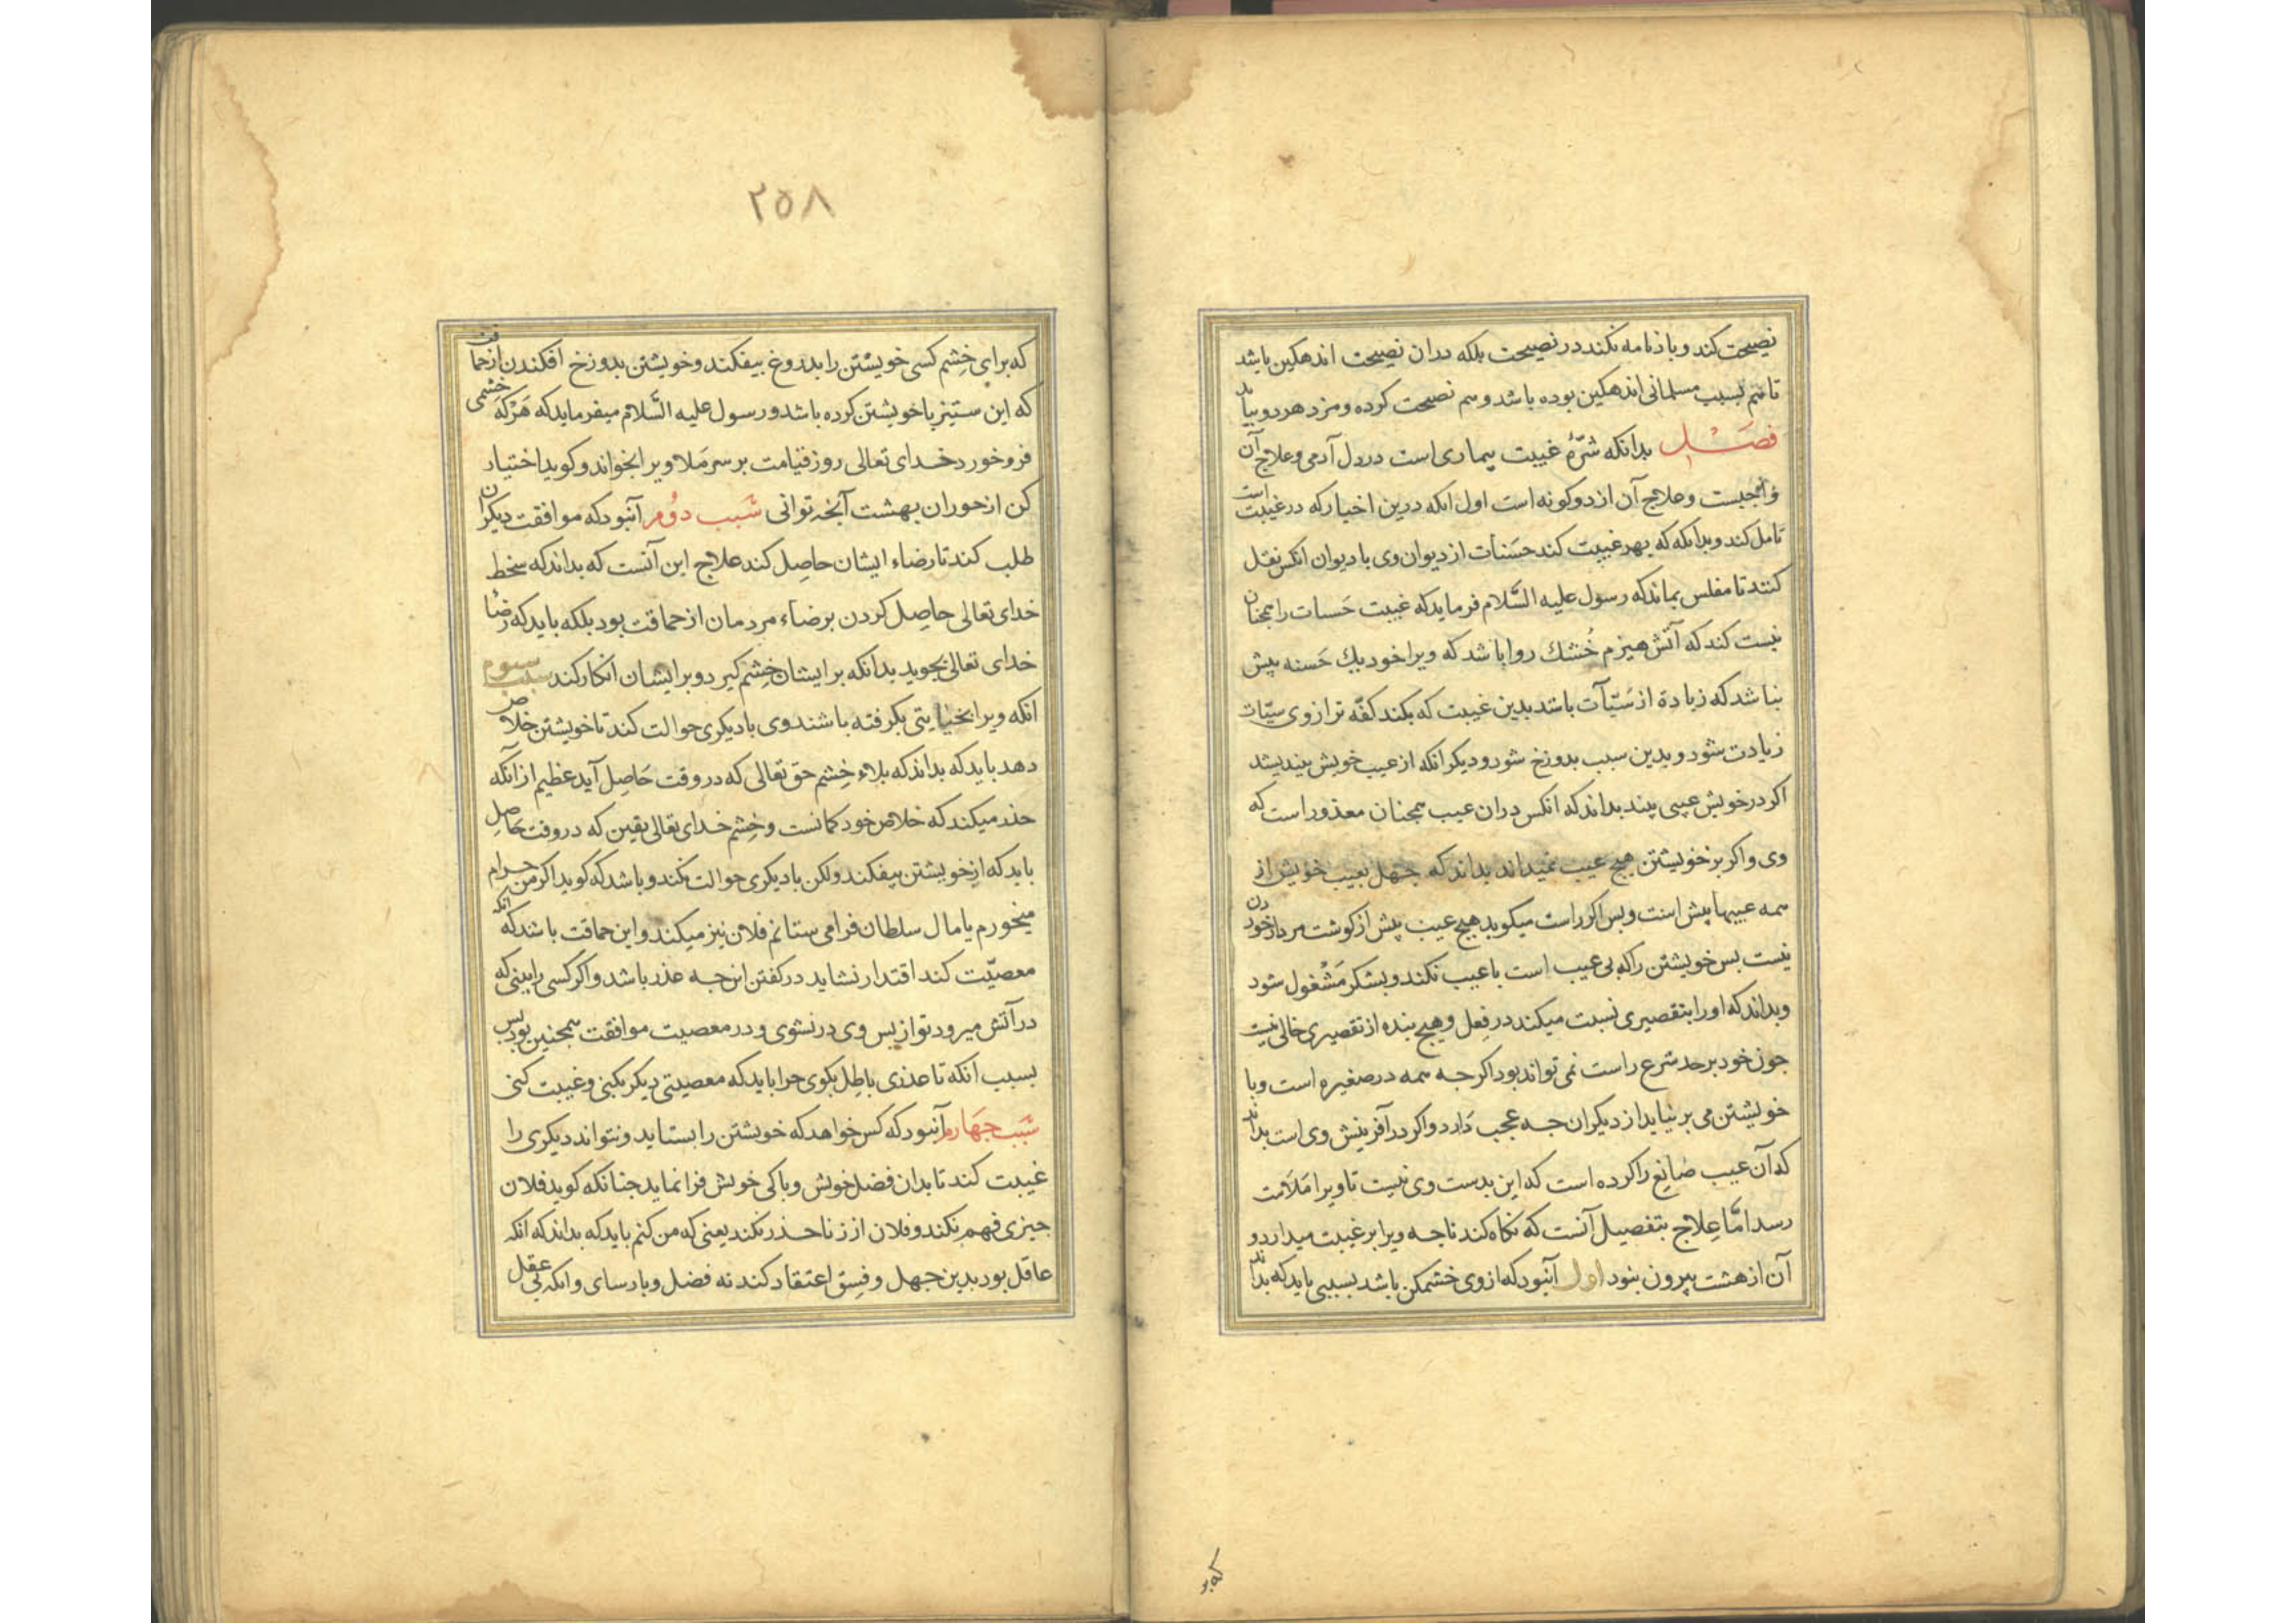 نصیحت کند و باز نامه نکند در نصیحت بلکه دران نصیحت اندهکین باشد
تا هم بسبب مسلمانی اندهکین بوده باشد و هم نصیحت کرده و مزد هر دو بیابد
فصل بدانکه شرّهٔ غیبت بیماری است در دل آدمی و علاج آن
واجبست و علاج آن از دو کونه است اول انکه درین اخبار که در غیبت است
تامل کند و بدانکه که بهر غیبت کند حسنات از دیوان وی با دیوان انکس نقل
کنند تا مفلس بماند که رسول علیه السّلام فرماید که غیبت حَسنات را همجنان
نیست کند که آتش هیزم خُشک روا باشد که ویرا خود یک حَسنه بیش
نباشد که زیادة از سَیّآت باشد بدین غیبت که بکند کفّه ترازوی سیّئات
زیادت شود و بدین سبب بدوزخ شود و دیکر انکه از عیب خویش بیندیشد
اکر در خویش عیبی بیند بداند که انکس دران عیب همجنان معذور است که
وی و اکر بر خویشتن هیج عیب نمیداند بداند که جهل بعیب خویش از
همه عیبها بیش است و بس اکر راست میکوید هیج عیب بیش از کوشت مردار خوردن
نیست بس خویشتن را که بی عیب است با عیب نکند و بشکر مَشغول شود
و بداند که او را بتقصیری نسبت میکند در فِعل و هیج بنده از تقصیری خالی نیست
جون خود بر حد شرع راست نمی تواند بود اکر جه همه در صغیره است و با
خویشتن می بر نیاید از دیکران جه عجب دارد و اکر در آفرینش وی است بداند
که آن عیب صٰانع را کرده است که این بدست وی نیست تا ویرا مَلامت
رسد امّا عِلاج بتفصیل آنست که نکاه کند تا جه ویرا بر غیبت میدارد و
آن از هشت بیرون نبود اول آنبود که از وی خشمکن باشد بسببی باید که بداند
که بر
٢٥٨
که برای خِشم کسی خویشتن را بدروغ بیفکند و خویشتن بدوزخ افکندن از حماقت
که این ستیز با خویشتن کرده باشد و رسول علیه السَّلام میفرماید که هَرْکه خشمی
فرو خورد خدای تعالی روز قیامت بر سر مَلا ویرا بخواند و کوید اختیار
کن از حوران بهشت آنجه توانی سَبب دوُم آنبود که موافقت دیکران
طلب کند تا رضاء ایشان حاصِل کند علاج این آنست که بداند که سخط
خدای تعالی حاصِل کردن برضاء مردمان از حماقت بود بلکه باید که رضٰا
خدای تعالی بجوید بدانکه بر ایشان خِشم کیرد و بر ایشان انکار کند سبب سوم
انکه ویرا بخیٰایتی بکرفته باشند وی با دیکری حوالت کند تا خویشتن خلاص
دهد باید که بداند که بلاء خِشم حق تعالی که در وقت حَاصِل آید عظیم از آنکه
حذر میکند که خلاص خود کمانست و خِشم خدای تعالی یقین که در وقت حَاصِل
باید که از خویشتن بیفکند ولکن با دیکری حوالت نکند و باشد که کوید اکر من حرام
میخورم یا مال سلطان فرامی ستانم فلان نیز میکند و این حماقت باشد که انکه
معصیّت کند اقتدار نشاید در کفتن این جه عذر باشد و اکر کسی را بینی که
در آتش میرود تو از بس وی در نشوی و در معصیت موافقت همجنین بود بس
بسبب انکه تا عذری باطِل بکوی جرا باید که معصیتی دیکر بکنی و غیبت کنی
سَبب جهارم آنبود که کس خواهد که خویشتن را بستاید و نتواند دیکری را
غیبت کند تا بدان فضل خویش و باکی خویش فرا نماید جنانکه کوید فلان
جیزی فهم نکند و فلان از زنا حذر نکند یعنی که من کنم باید که بداند که انکه
عاقل بود بدین جهل و فِسق اعتقاد کند نه فضل و بارسای و انکه بی عقل